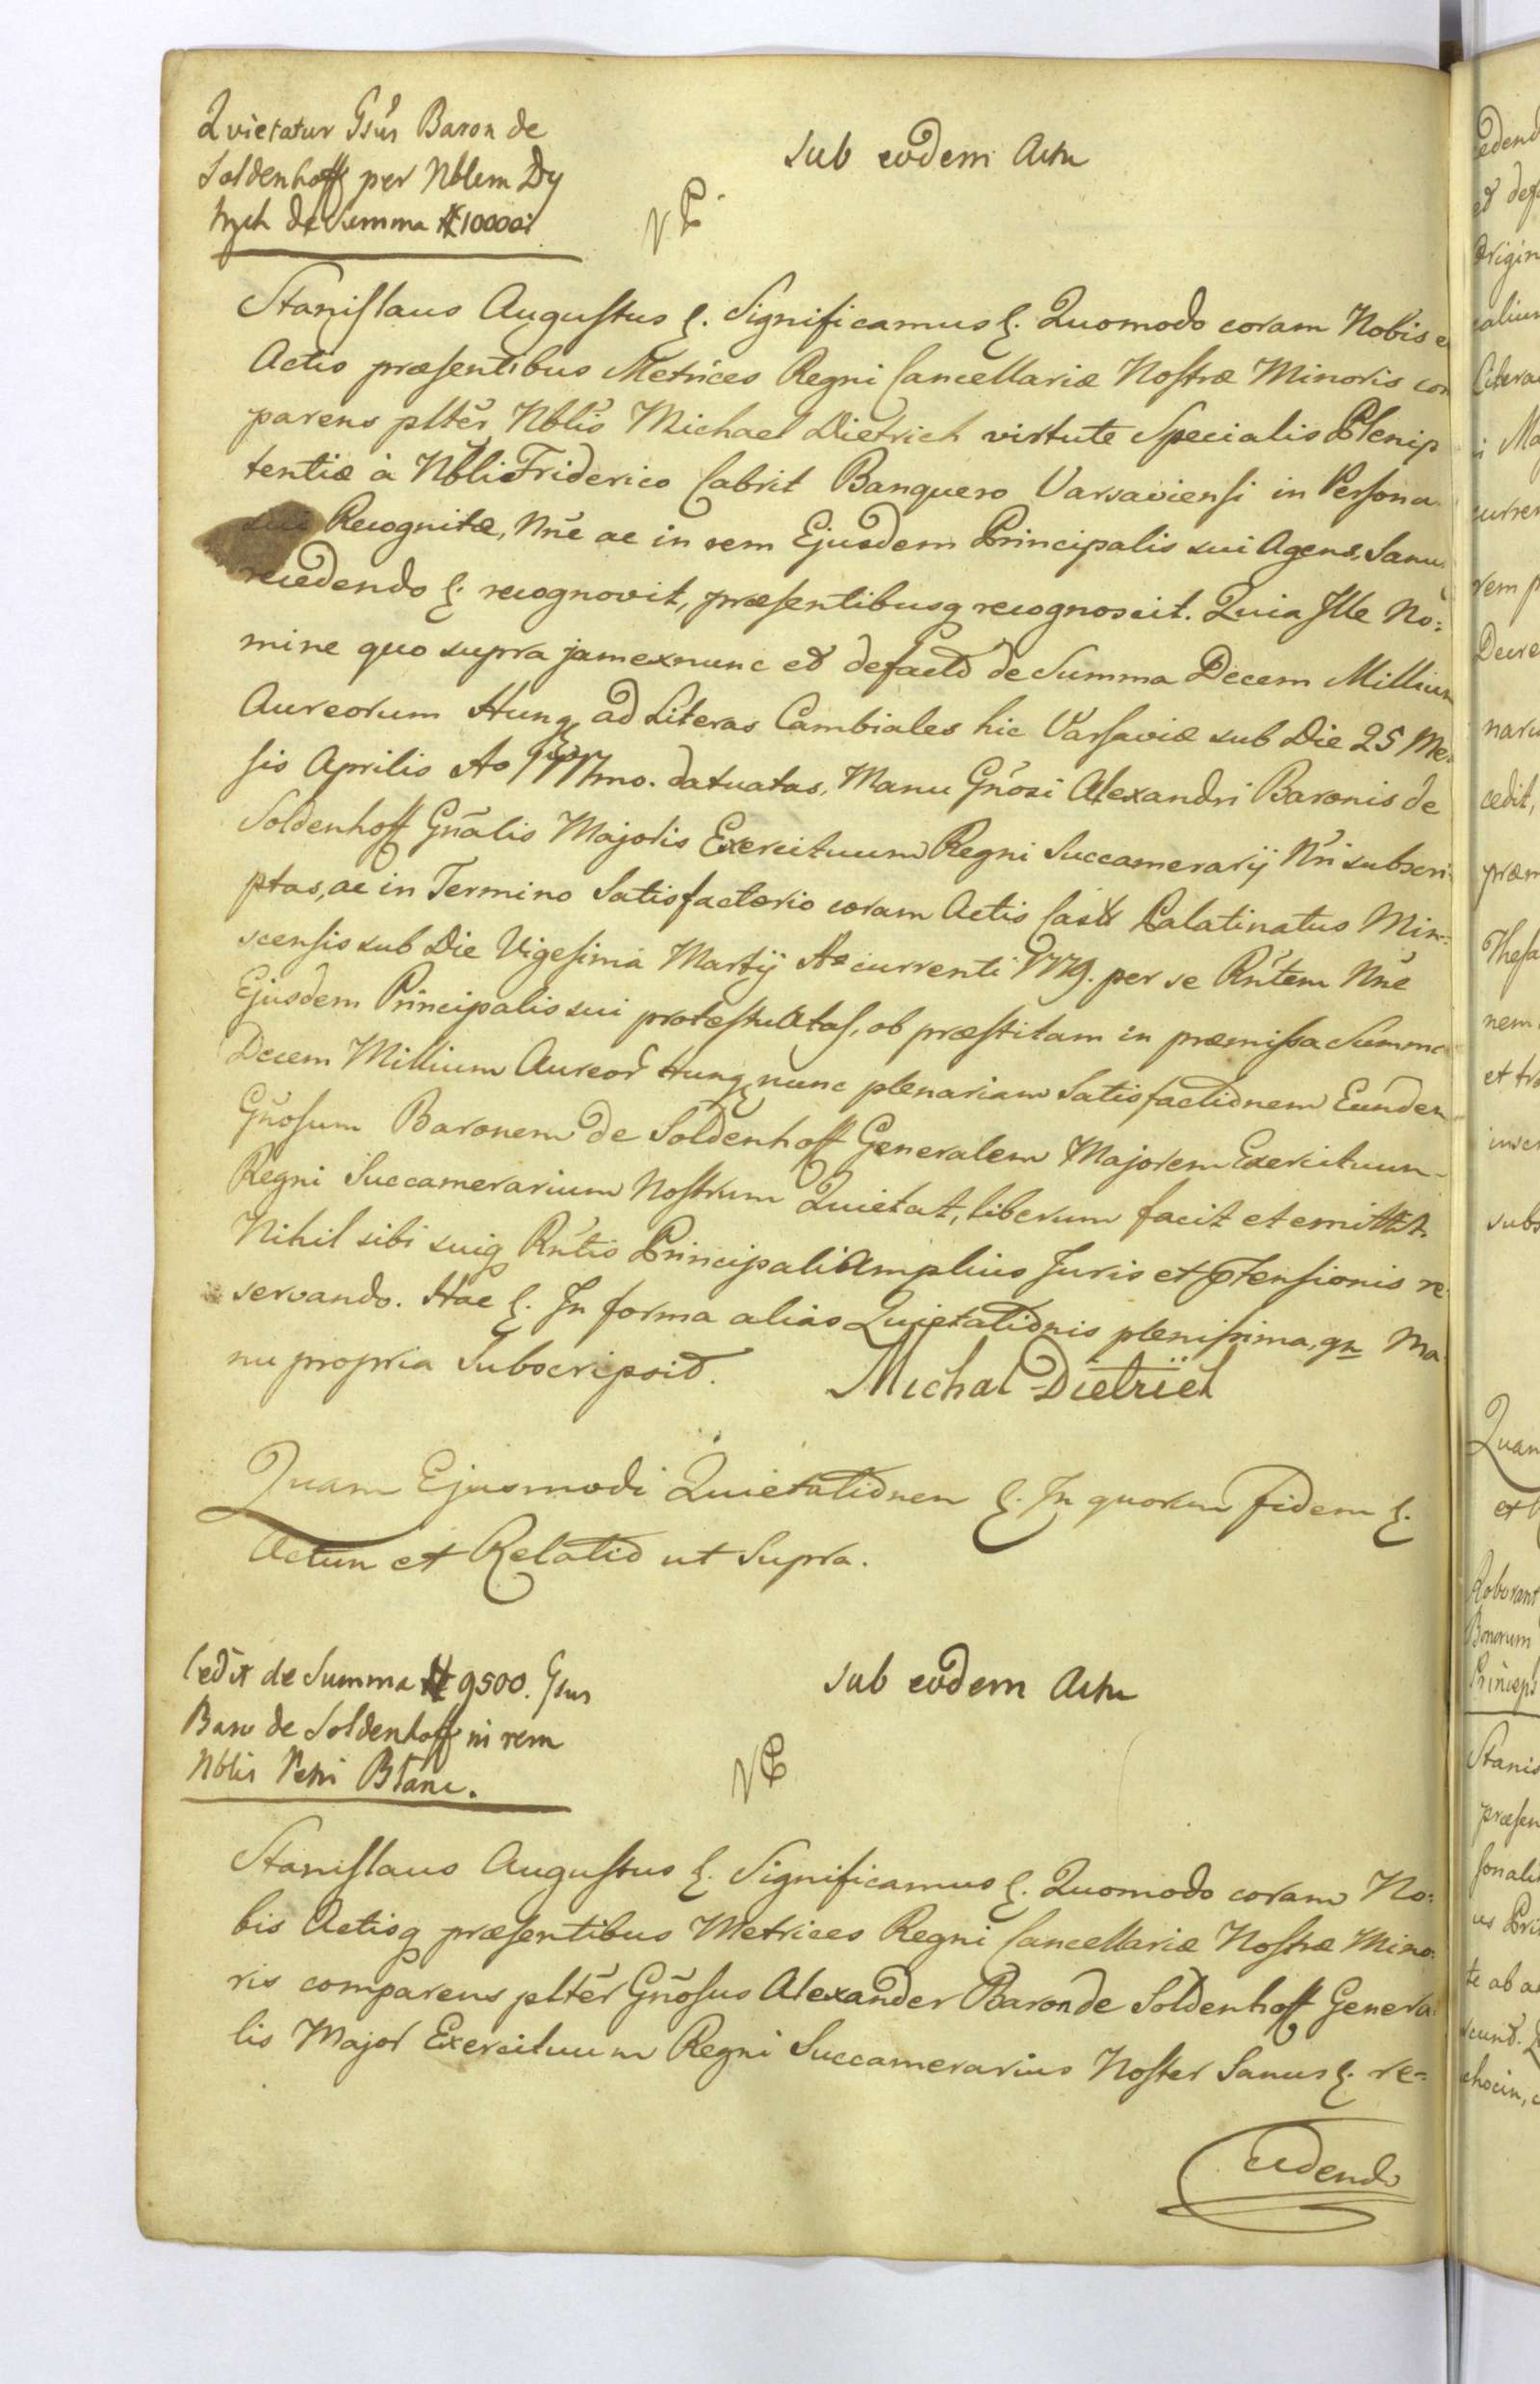 Quietatur Gsus Baron de
Soldenhoff per Nblem Dy
trych de Summa # 10000.
Sub eodem Actu
Stanislaus Augustus &. Significamus &. Quomodo coram Nobis
Actis præsentibus Metrices Regni Cancellariæ Nostræ Minoris com
parens plter Nblis Michael Dietrich virtute Specialis Plenip
tentiæ à Nbli Friderico Cabrit Banquero Varsaviensi in Persona
sui Recognitæ, Nne ac in rem Ejusdem Principalis sui Agens, Sanus
recedendo &. recognovit, præsentibusq recognoscit. Quia Ille No:
mine quo supra jam exnunc et defacto de Summa Decem Millium
Aureorum Hung ad Literas Cambiales hic Varsaviæ sub Die 25 Men
sis Aprilis Ao 1777mo. datuatas, Manu Gnosi Alexandri Baronis de
Soldenhoff Gnalis Majoris Exercituum Regni Succamerarij Nri subscri-
ptas, ac in Termino Satisfactorio coram Actis Castr Palatinatus Min-
scensis sub Die Vigesima Martij Ao currenti 1779. per se Rntem Nne
Ejusdem Principalis sui protestuatas, ob præstitam in præmissa Summa
Decem Millium Aureor Hung nunc plenariam Satisfactionem Eundem
Gnosum Baronem de Soldenhoff Generalem Majorem Exercituum
Regni Succamerarium Nostrum Quietat, liberum facit et emittit
Nihil sibi suiq Rntis Principali Amplius Juris et ptensionis re
servando. Hac &. In forma alias Quietationis plenissima, qn Ma
nu propria Subscripsit. Michal Dietrich
Quam Ejusmodi Quietationem &. In quorum fidem &.
Actum et Relatio ut Supra.
Cedit de Summa # 9500. Gsus
Baro de Soldenhoff in rem
Nblis Petri Blanc.
Sub eodem Actu
Stanislaus Augustus &. Significamus &. Quomodo coram No:
bis Actisq præsentibus Metrices Regni Cancellariæ Nostræ Mino:
ris comparens plter Gnosus Alexander Baron de Soldenhoff Genera
lis Major Exercituum Regni Succamerarius Noster Sanus &. re-
cedendo